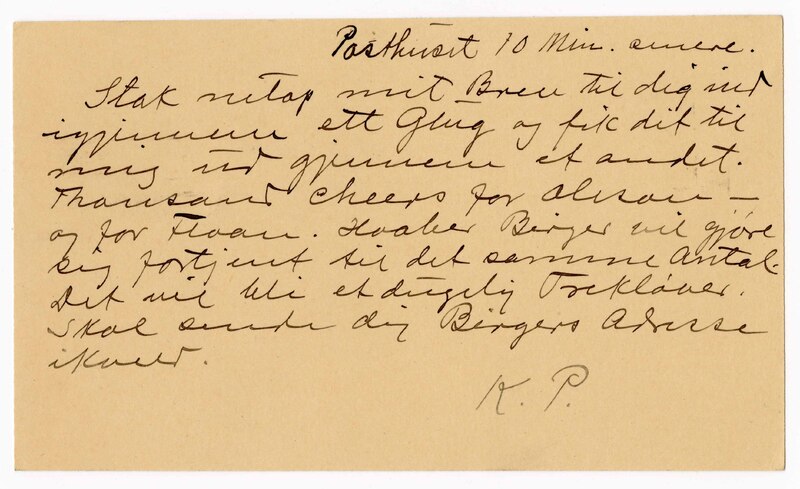 Posthuset 10 Min. senere.
Stak netop mit Brev til dig ind
igjennem ett Glug og fik dit til
mig ud gjennem et andet.
Thousand cheers for Oleson –
og for Floan. Haaber Birger vil gjøre
sig fortjent til det samme Antal.
Det vil bli et dugelig Trekløver.
Skal sende dig Birgers Adresse
ikveld.
K. P.